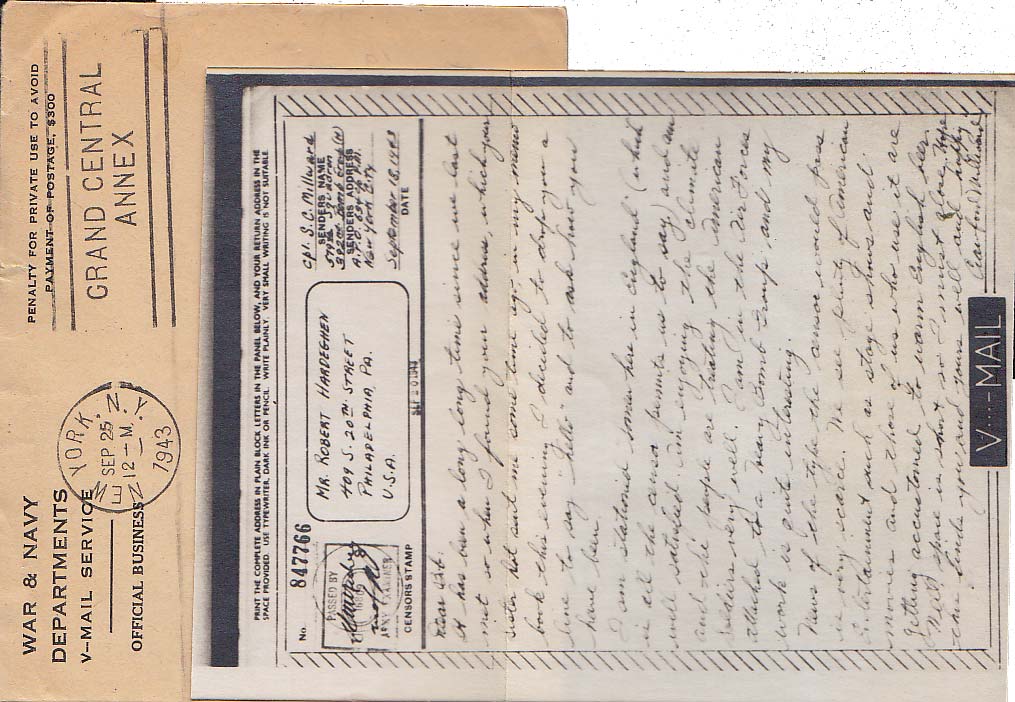 WAR & NAVY
DEPARTMENTS
V-MAIL SERVICE
OFFICIAL BUSINESS
NEW YORK, N.Y.
SEP 25
12-M
1943
GRAND CENTRAL
ANNEX
PENALTY FOR PRIVATE USE TO AVOID
PAYMENT OF POSTAGE, $300
PRINT THE COMPLETE ADDRESS IN PLAIN BLOCK LETTERS IN THE PANEL BELOW, AND YOUR RETURN ADDRESS IN THE
SPACE PROVIDED. USE TYPEWRITER, DARK INK OR PENCIL. WRITE PLAINLY. VERY SMALL WRITING IS NOT SUITABLE.
No.
847766
PASSED BY
ARMY EXAMINER
CENSORS STAMP
MR. ROBERT HARDEGHEN
409 S. 20TH STREET
PHILADELPHIA, PA.
U.S.A.
Cpl. S.C. Millward
SENDERS NAME
579th Sqdrn
392nd Bomb Group (H)
SENDERS ADDRESS
A.P.O. 634 % P.M.
New York City
September 18, 1943
DATE
Dear
It has been a long long time since we last
met so when I found your address, which your
sister had sent me some time ago, in my memo
book this evening, I decided to drop you a
line to say "hello" and to ask how you
have been.
I am stationed somewhere in England (which
is all the censor permits us to say) and am
well satisfied. I'm enjoying the climate
and the people are treating the American
soldiers very well. I am in the Air Forces
attached to a Heavy Bomb Group and my
work is quite interesting.
News of the type the censor would pass
is very scarce. We see plenty of American
entertainment such as stage shows and
movies and those of us who use it are
getting accustomed to warm English beer.
Well space is short so I must close. Hope
this finds you and yours well and happy
Millward
V···—MAIL